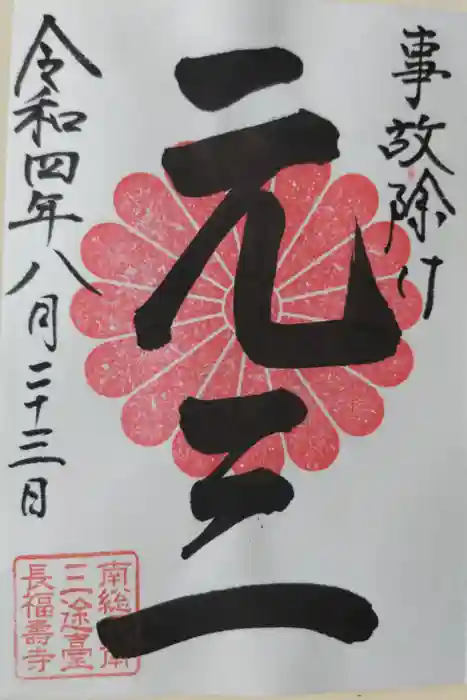 事故除け
元三
令和四年八月二十三日
南総 南
三途臺
長福壽寺